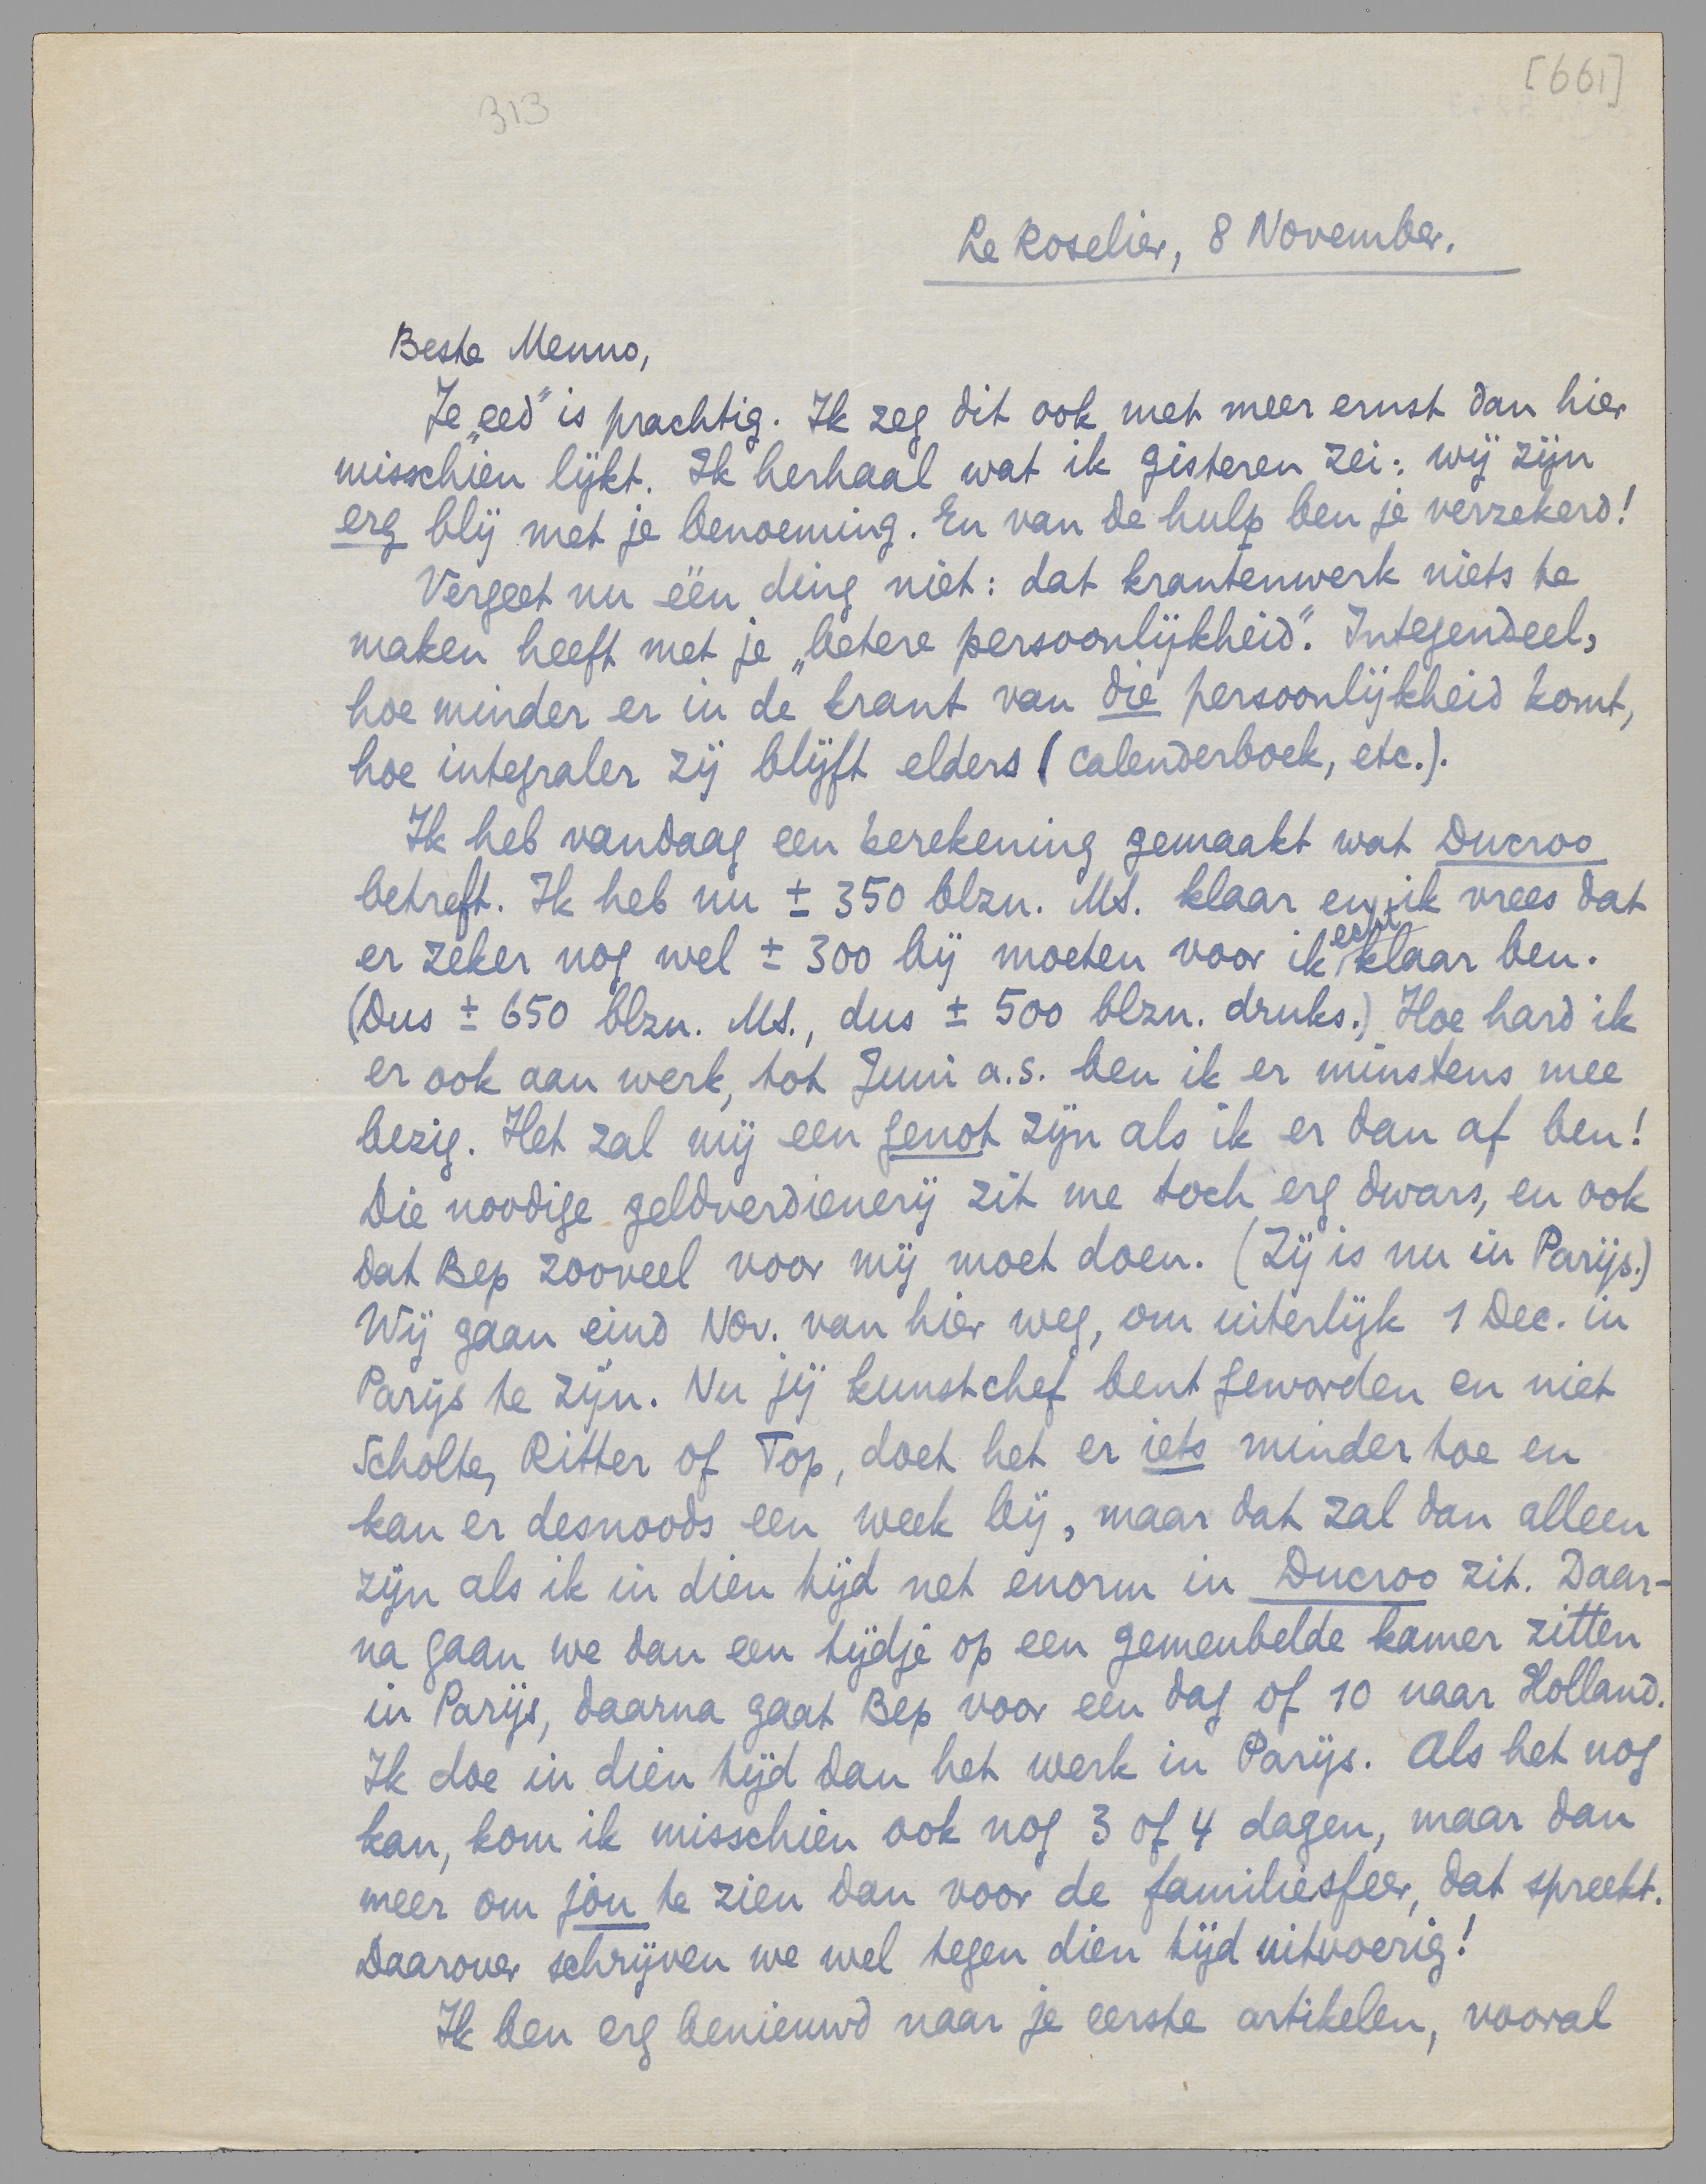 [661]
313
Le Roselier, 8 November.
Beste Menno,
Je „eed” is prachtig. Ik zeg dit ook met meer ernst dan hier
misschien lijkt. Ik herhaal wat ik gisteren zei: wij zijn
erg blij met je benoeming. En van de hulp ben je verzekerd!
Vergeet nu één ding niet: dat krantenwerk niets te
maken heeft met je „betere persoonlijkheid”. Integendeel,
hoe minder er in de krant van die persoonlijkheid komt,
hoe integraler zij blijft elders (calenderboek, etc.).
Ik heb vandaag een berekening gemaakt wat Ducroo
betreft. Ik heb nu ± 350 blzn. MS. klaar en ik vrees dat
er zeker nog wel ± 300 bij moeten voor ik echt klaar ben.
(Dus ± 650 blzn. MS., dus ± 500 blzn. druks.) Hoe hard ik
er ook aan werk, tot Juni a.s. ben ik er minstens mee
bezig. Het zal mij een genot zijn als ik er dan af ben!
Die noodige geldverdienerij zit me toch erg dwars, en ook
dat Bep zooveel voor mij moet doen. (Zij is nu in Parijs.)
Wij gaan eind Nov. van hier weg, om uiterlijk 1 Dec. in
Parijs te zijn. Nu jij kunstchef bent geworden en niet
Scholte, Ritter of Top, doet het er iets minder toe en
kan er desnoods een week bij, maar dat zal dan alleen
zijn als ik in dien tijd net enorm in Ducroo zit. Daar-
na gaan we dan een tijdje op een gemeubelde kamer zitten
in Parijs, daarna gaat Bep voor een dag of 10 naar Holland.
Ik doe in dien tijd dan het werk in Parijs. Als het nog
kan, kom ik misschien ook nog 3 of 4 dagen, maar dan
meer om jou te zien dan voor de familiesfeer, dat spreekt.
Daarover schrijven we wel tegen dien tijd uitvoerig!
Ik ben erg benieuwd naar je eerste artikelen, vooral